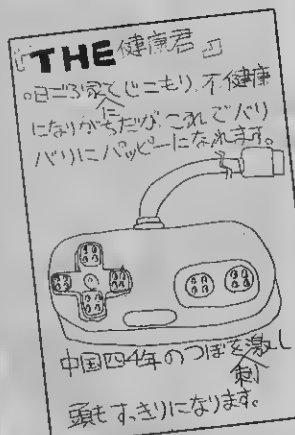 『THE健康君』
。日ごろ家にとじこもり、不健康
になりがちだが、これでバリ
バリにハッピーになれます。
中国四千年のつぼを刺激し
頭もすっきりになります。